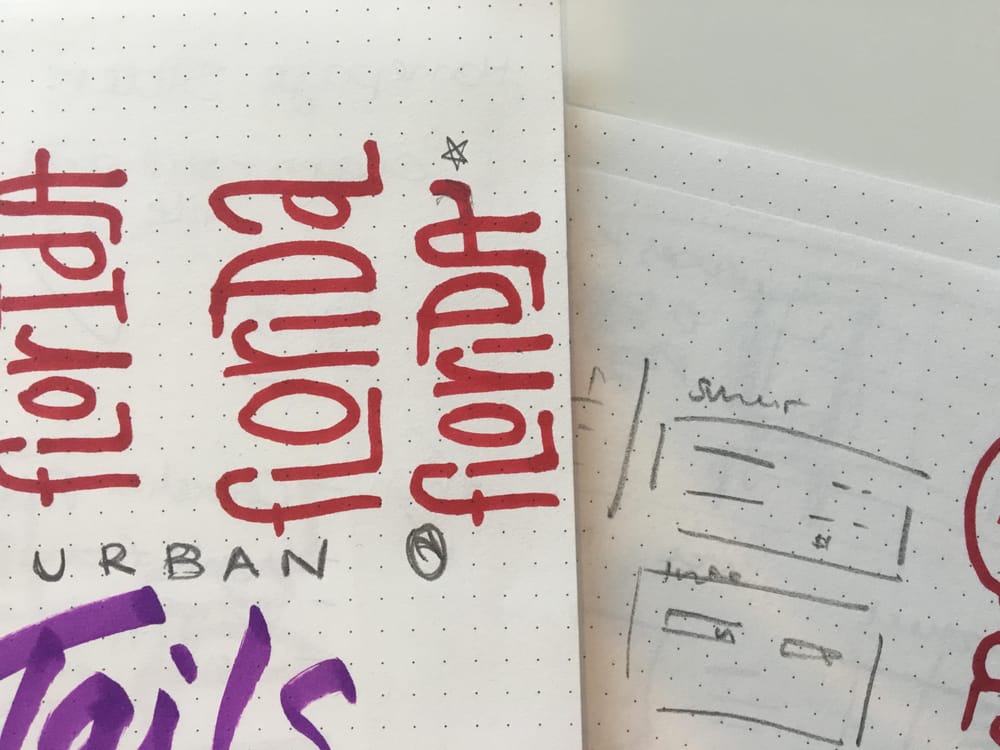 florIdA
florIDa
florIDA
URBAN
2
Tails